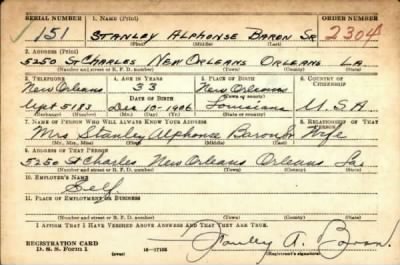 SERIAL NUMBER 1. NAME (Print) ORDER NUMBER
151 STANLEY ALPHONSE BARON SR 2304
(First) (Middle) (Last)
2. ADDRESS (Print)
5250 St CHARLES NEW ORLEANS ORLEANS LA
(Number and street or R. F. D. number) (Town) (County) (State)
3. TELEPHONE 4. AGE IN YEARS 5. PLACE OF BIRTH 6. COUNTRY OF CITIZENSHIP
New Orleans 33 New Orleans
DATE OF BIRTH (Town or county)
Upt 5183 Dec 10-1906 Louisiana U.S.A
(Exchange) (Number) (Mo.) (Day) (Yr.) (State or country)
7. NAME OF PERSON WHO WILL ALWAYS KNOW YOUR ADDRESS 8. RELATIONSHIP OF THAT PERSON
Mrs Stanley Alphonse Baron Wife
(Mr., Mrs., Miss) (First) (Middle) (Last)
9. ADDRESS OF THAT PERSON
5250 St Charles New Orleans Orleans La
(Number and street or R. F. D. number) (Town) (County) (State)
10. EMPLOYER'S NAME
Self.
11. PLACE OF EMPLOYMENT OR BUSINESS
(Number and street or R. F. D. number) (Town) (County) (State)
I AFFIRM THAT I HAVE VERIFIED ABOVE ANSWERS AND THAT THEY ARE TRUE.
REGISTRATION CARD Stanley A. Baron.
D. S. S. Form 1 (over) 16-17105 (Registrant's signature)